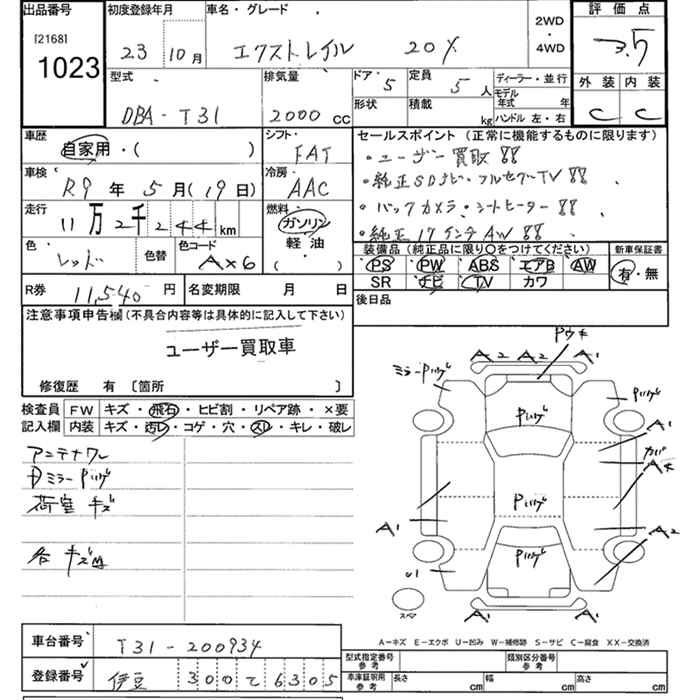 出品番号 初度登録年月 車名・グレード 2WD・4WD 評価点
[2168] 1023 23 10月 エクストレイル 20X 3.5
型式 排気量 ドア 5 定員 5人 ディーラー・並行 外装 内装
DBA-T31 2000cc 形状 積載 kg モデル年式 年 ハンドル 左・右 C C
車歴 シフト セールスポイント(正常に機能するものに限ります)
自家用・( ) FAT ・ユーザー買取!!
車検 冷房 ・純正SDナビ・フルセグTV!!
R9年5月(19日) AAC ・バックカメラ・シートヒーター!!
走行 燃料 ・純正17インチAW!!
11万2千244km ガソリン
軽油
( )
色 色替 色コード 装備品(純正品に限り○をつけてください) 新車保証書
レッド AX6 PS PW ABS エアB AW 有・無
SR ナビ TV カワ
R券 11,540円 名変期限 月 日 後日品
注意事項申告欄(不具合内容等は具体的に記入して下さい)
ユーザー買取車
修復歴 有〔箇所 〕
検査員記入欄 FW キズ・飛石・ヒビ割・リペア跡・×要
内装 キズ・汚レ・コゲ・穴・スレ・キレ・破レ
アンテナワレ
荷室キズ
Pウキ
A2 A2 A1
A1
A1
A2
U1
スペア
A1 A1
A-キズ E-エクボ U-凹み W-補修跡 S-サビ C-腐食 XX-交換済
車台番号 T31-200934
型式指定番号 参考 類別区分番号 参考
登録番号 伊豆 300 て 6305
車庫証明用 参考 長さ cm 幅 cm 高さ cm